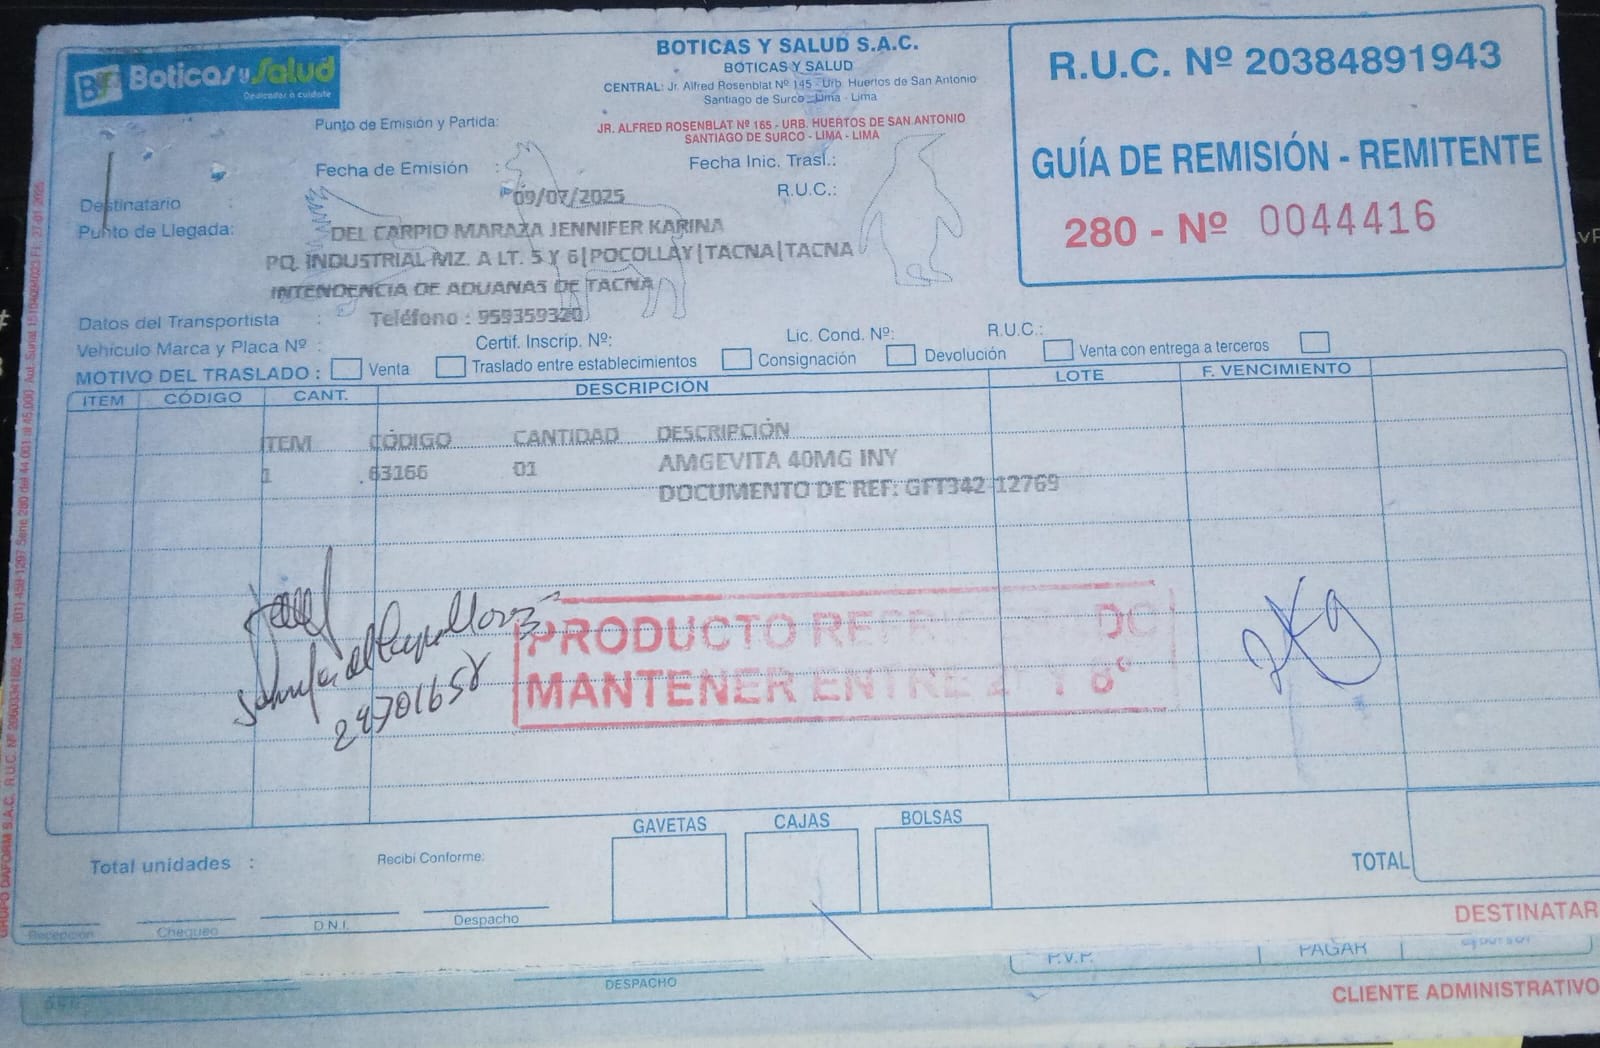 BS Boticas y Salud
Dedicados a cuidarte
BOTICAS Y SALUD S.A.C.
BOTICAS Y SALUD
CENTRAL: Jr. Alfred Rosenblat Nº 145 - Urb. Huertos de San Antonio
Santiago de Surco - Lima - Lima
Punto de Emisión y Partida:
JR. ALFRED ROSENBLAT Nº 165 - URB. HUERTOS DE SAN ANTONIO
SANTIAGO DE SURCO - LIMA - LIMA
R.U.C. Nº 20384891943
GUÍA DE REMISIÓN - REMITENTE
280 - Nº 0044416
Fecha de Emisión :
Fecha Inic. Trasl.:
09/07/2025
R.U.C.:
Destinatario :
Punto de Llegada:
DEL CARPIO MARAZA JENNIFER KARINA
PQ. INDUSTRIAL MZ. A LT. 5 Y 6|POCOLLAY|TACNA|TACNA
INTENDENCIA DE ADUANAS DE TACNA
Datos del Transportista :
Teléfono : 959359320
Vehículo Marca y Placa Nº :
Certif. Inscrip. Nº:
Lic. Cond. Nº:
R.U.C.:
MOTIVO DEL TRASLADO : Venta Traslado entre establecimientos Consignación Devolución Venta con entrega a terceros
ITEM CÓDIGO CANT. DESCRIPCIÓN LOTE F. VENCIMIENTO
ITEM CÓDIGO CANTIDAD DESCRIPCIÓN
1 63166 01 AMGEVITA 40MG INY
DOCUMENTO DE REF: GFT342 12769
PRODUCTO
MANTENER ENTRE 2° Y 8°
Total unidades :
Recibí Conforme:
GAVETAS CAJAS BOLSAS
TOTAL
Recepción Chequeo D.N.I. Despacho
DESTINATAR
DESPACHO
P.V.P. PAGAR
CLIENTE ADMINISTRATIVO